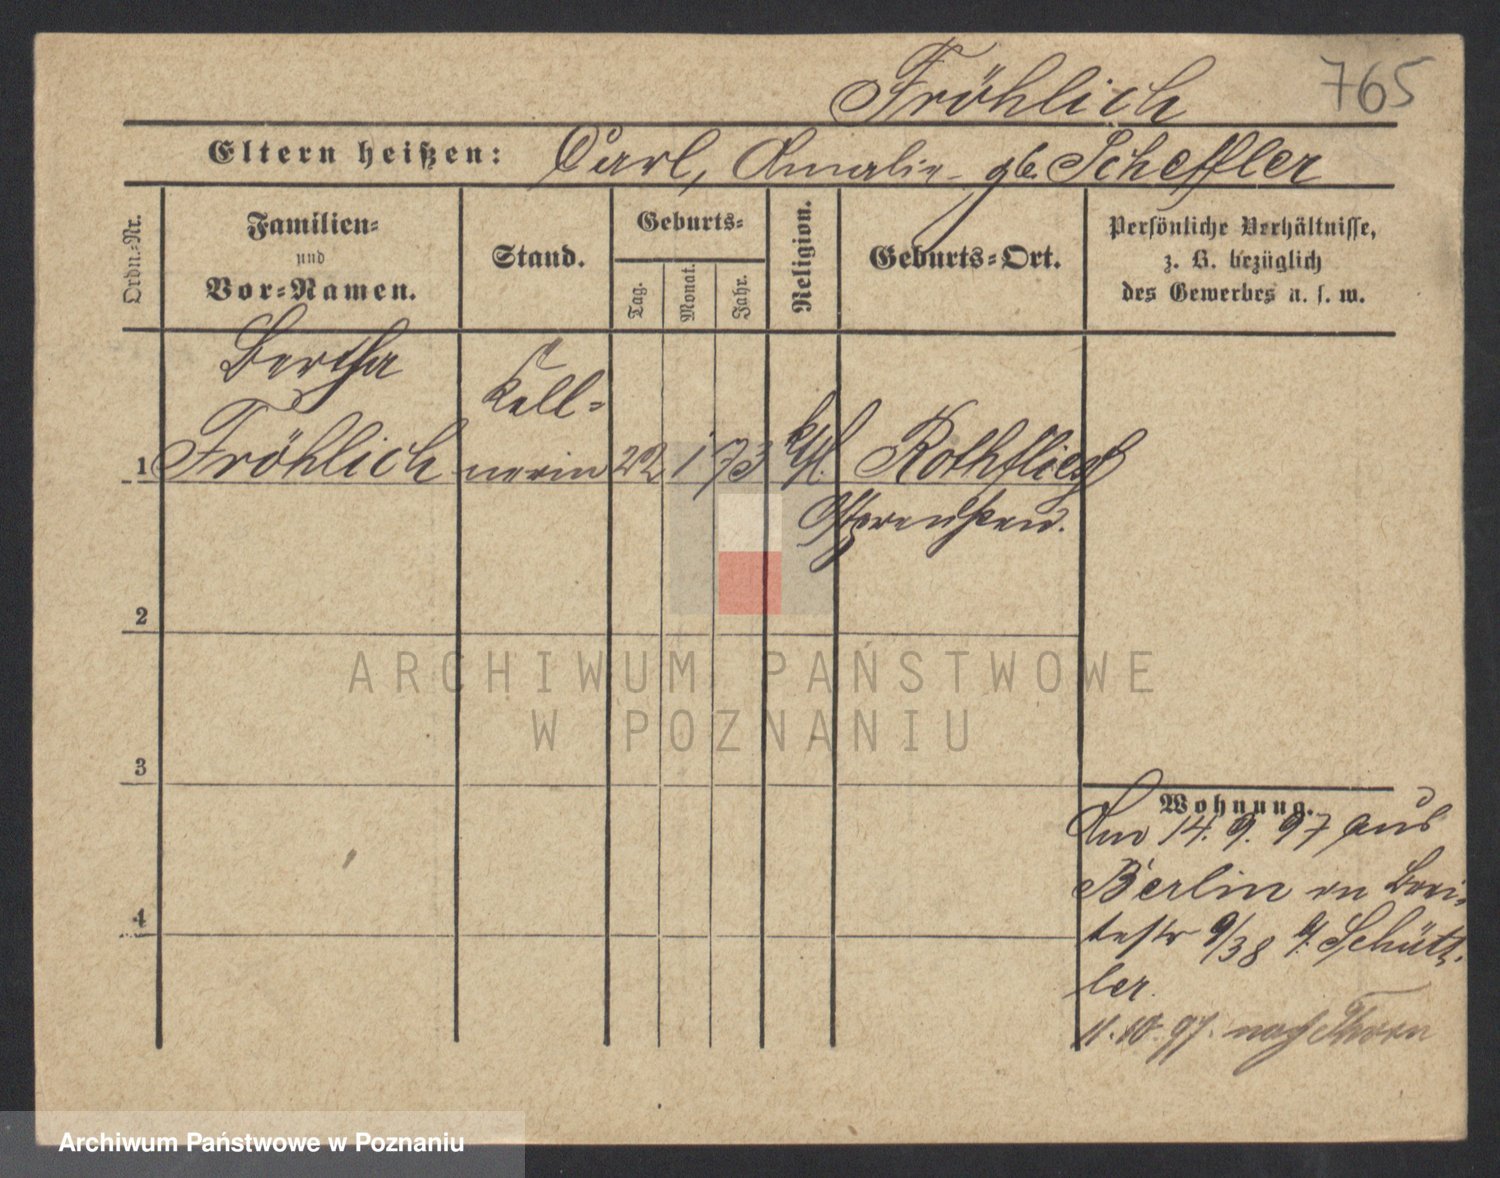 Fröhlich 765
Eltern heißen: Carl, Amalie gb. Scheffler
Ordn.-Nr.
Familien-
und
Vor-Namen.
Stand.
Geburts-
Tag.
Monat.
Jahr.
Religion.
Geburts-Ort.
Persönliche Verhältnisse,
z. B. bezüglich
des Gewerbes u. s. w.
Bertha
Kell-
1 Fröhlich nerin 22 1 73 kth. Rothfließ
Ostpreußen.
2
ARCHIWUM PAŃSTWOWE
W POZNANIU
3
Wohnung.
Am 14. 9. 97 aus
Berlin Brei-
testr 9/38 Schütt-
ler.
11. 10. 97. nach Thorn
4
Archiwum Państwowe w Poznaniu